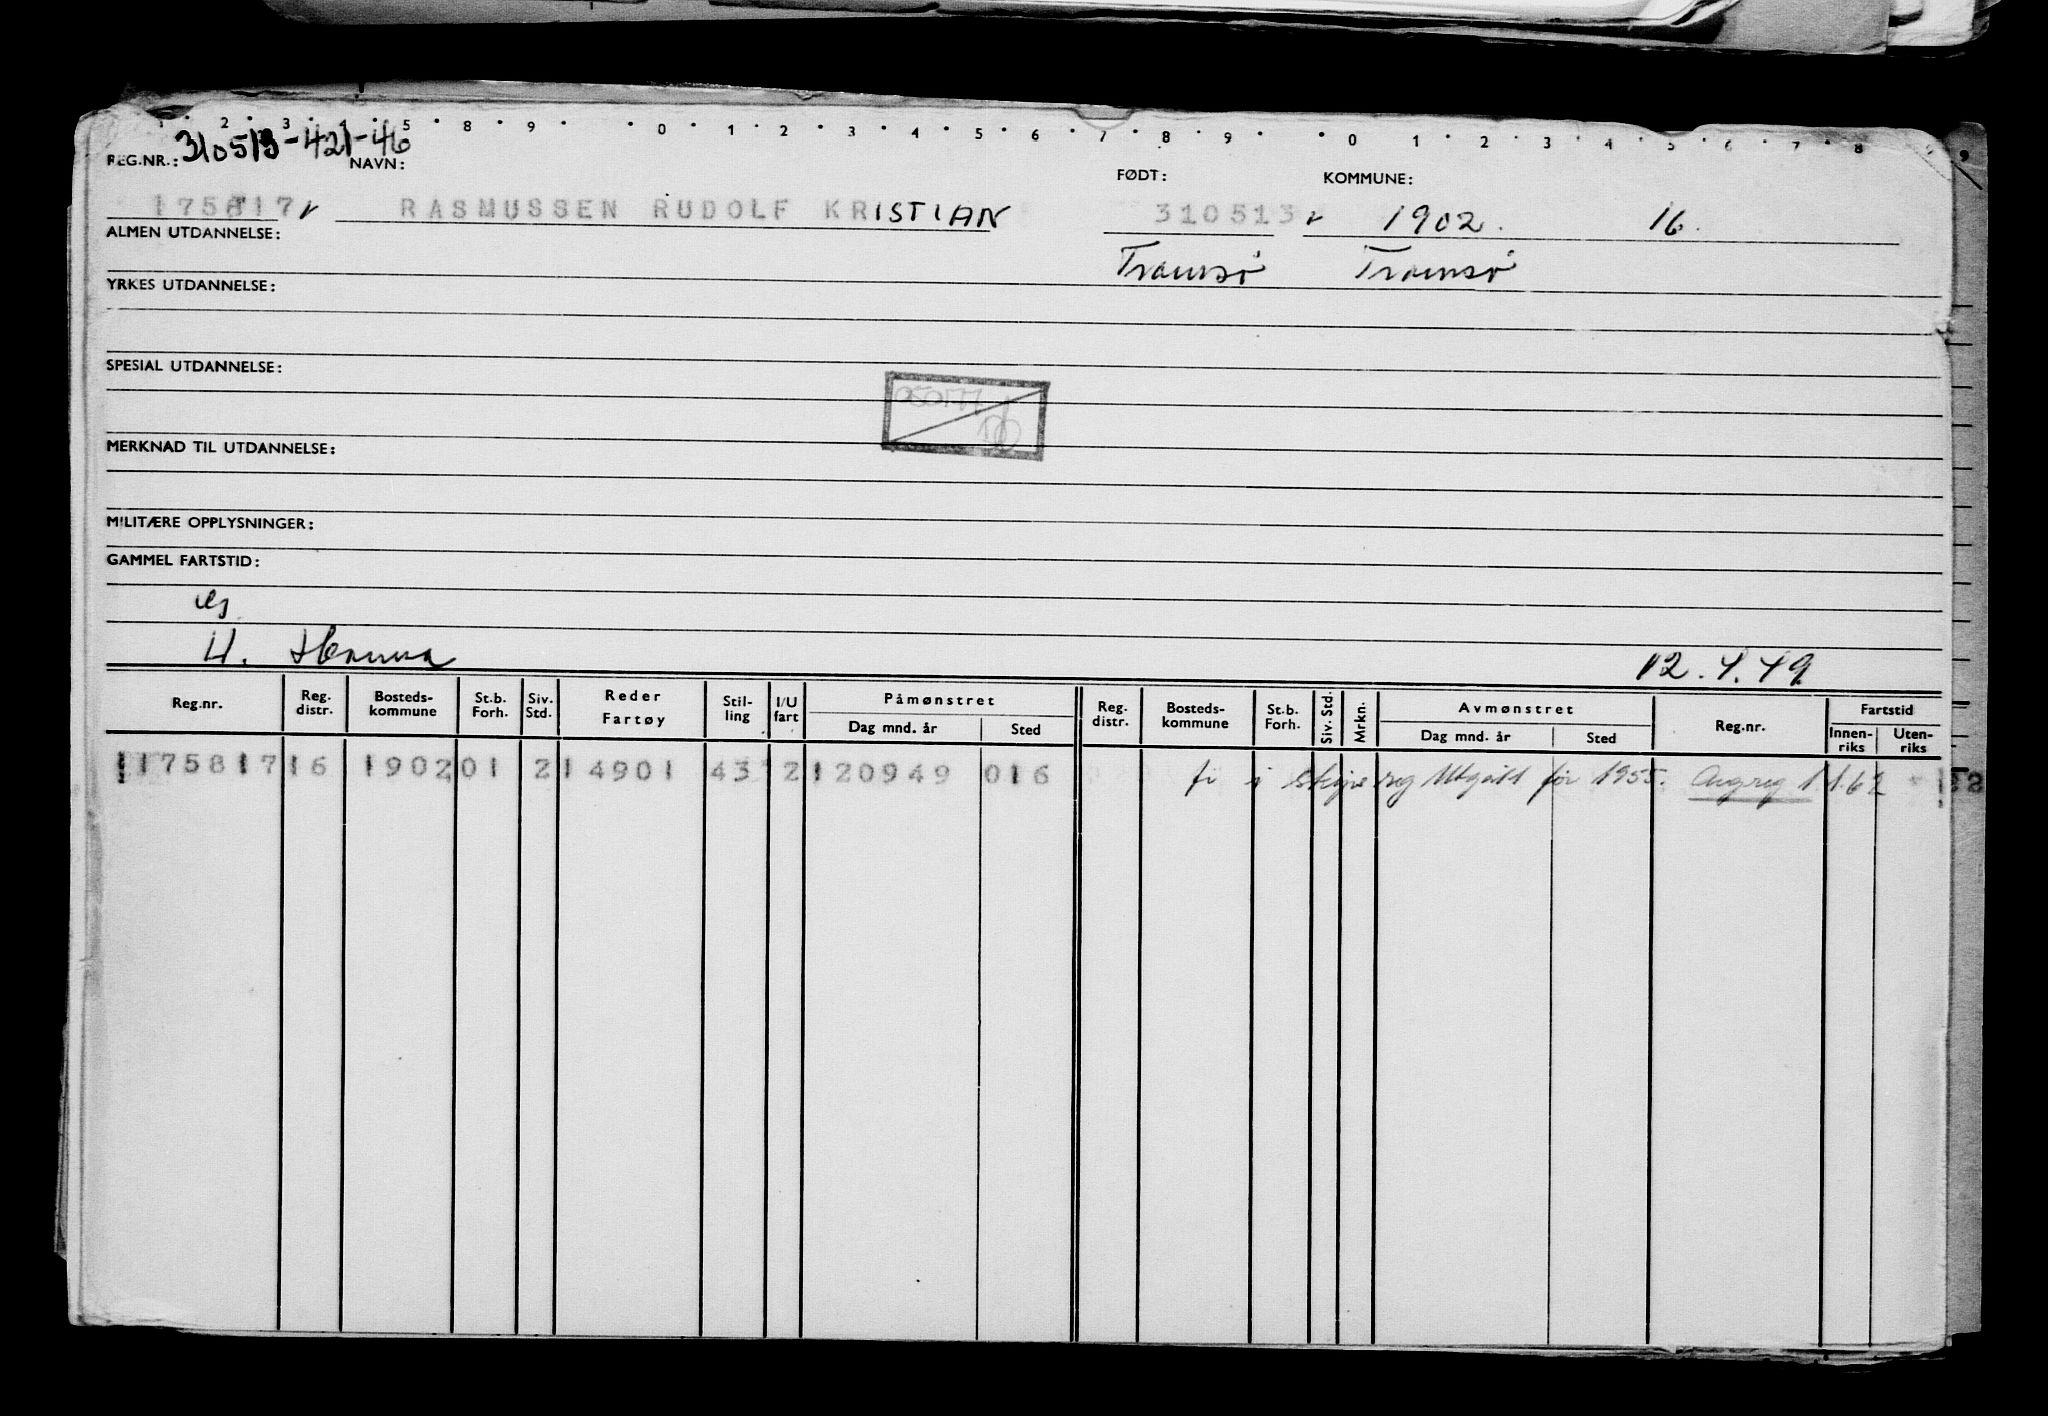 1 2 3 4 5 8 9 0 1 2 3 4 5 6 7 8 9 0 1 2 3 4 5 6 7 8 9
310513-421-46
REG.NR.: NAVN: FØDT: KOMMUNE:
175817 RASMUSSEN RUDOLF KRISTIAN 310513 1902. 16.
ALMEN UTDANNELSE: Tromsø Tromsø
YRKES UTDANNELSE:
SPESIAL UTDANNELSE:
MERKNAD TIL UTDANNELSE:
MILITÆRE OPPLYSNINGER:
GAMMEL FARTSTID:
U. 12.
Reg.nr. Reg. distr. Bosteds- kommune St.b. Forh. Siv. Std. Reder Fartøy Stil- ling I/U fart Påmønstret Reg. distr. Bosteds- kommune St.b. Forh. Siv. Std. Mrkn. Avmønstret Reg.nr. Fartstid
Dag mnd. år Sted Dag mnd. år Sted Innen- riks Uten- riks
175817 16 1902 01 2 14901 43 2 120949 016 utgått før 1955. Avgreg 1.1.62